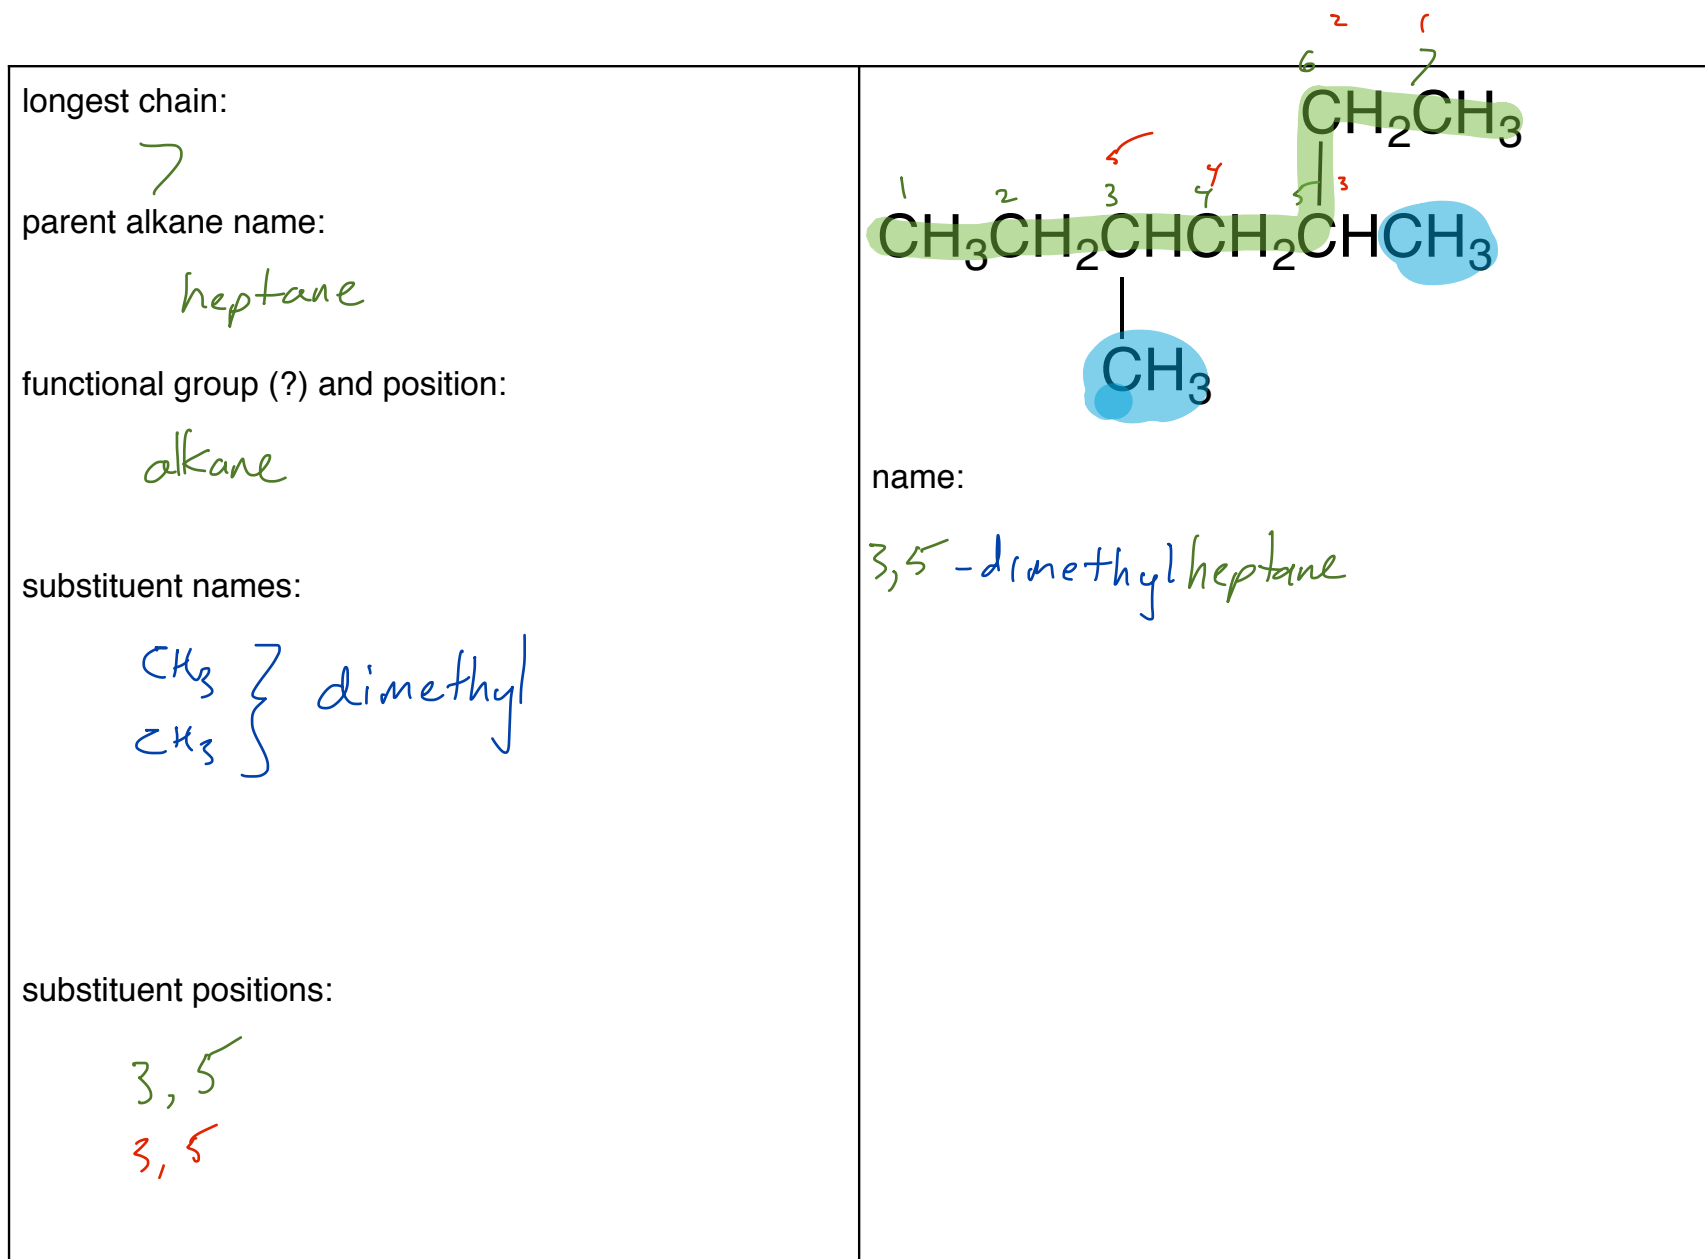 longest chain:
7
parent alkane name:
heptane
functional group (?) and position:
alkane
substituent names:
CH3
CH3 } dimethyl
substituent positions:
3, 5
3, 5
2 1
6 7
CH2CH3
5 4 3
1 2 3 4 5
CH3CH2CHCH2CHCH3
CH3
name:
3,5-dimethylheptane